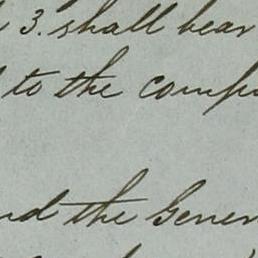 3. shall bear
to the comp
nd the Gener